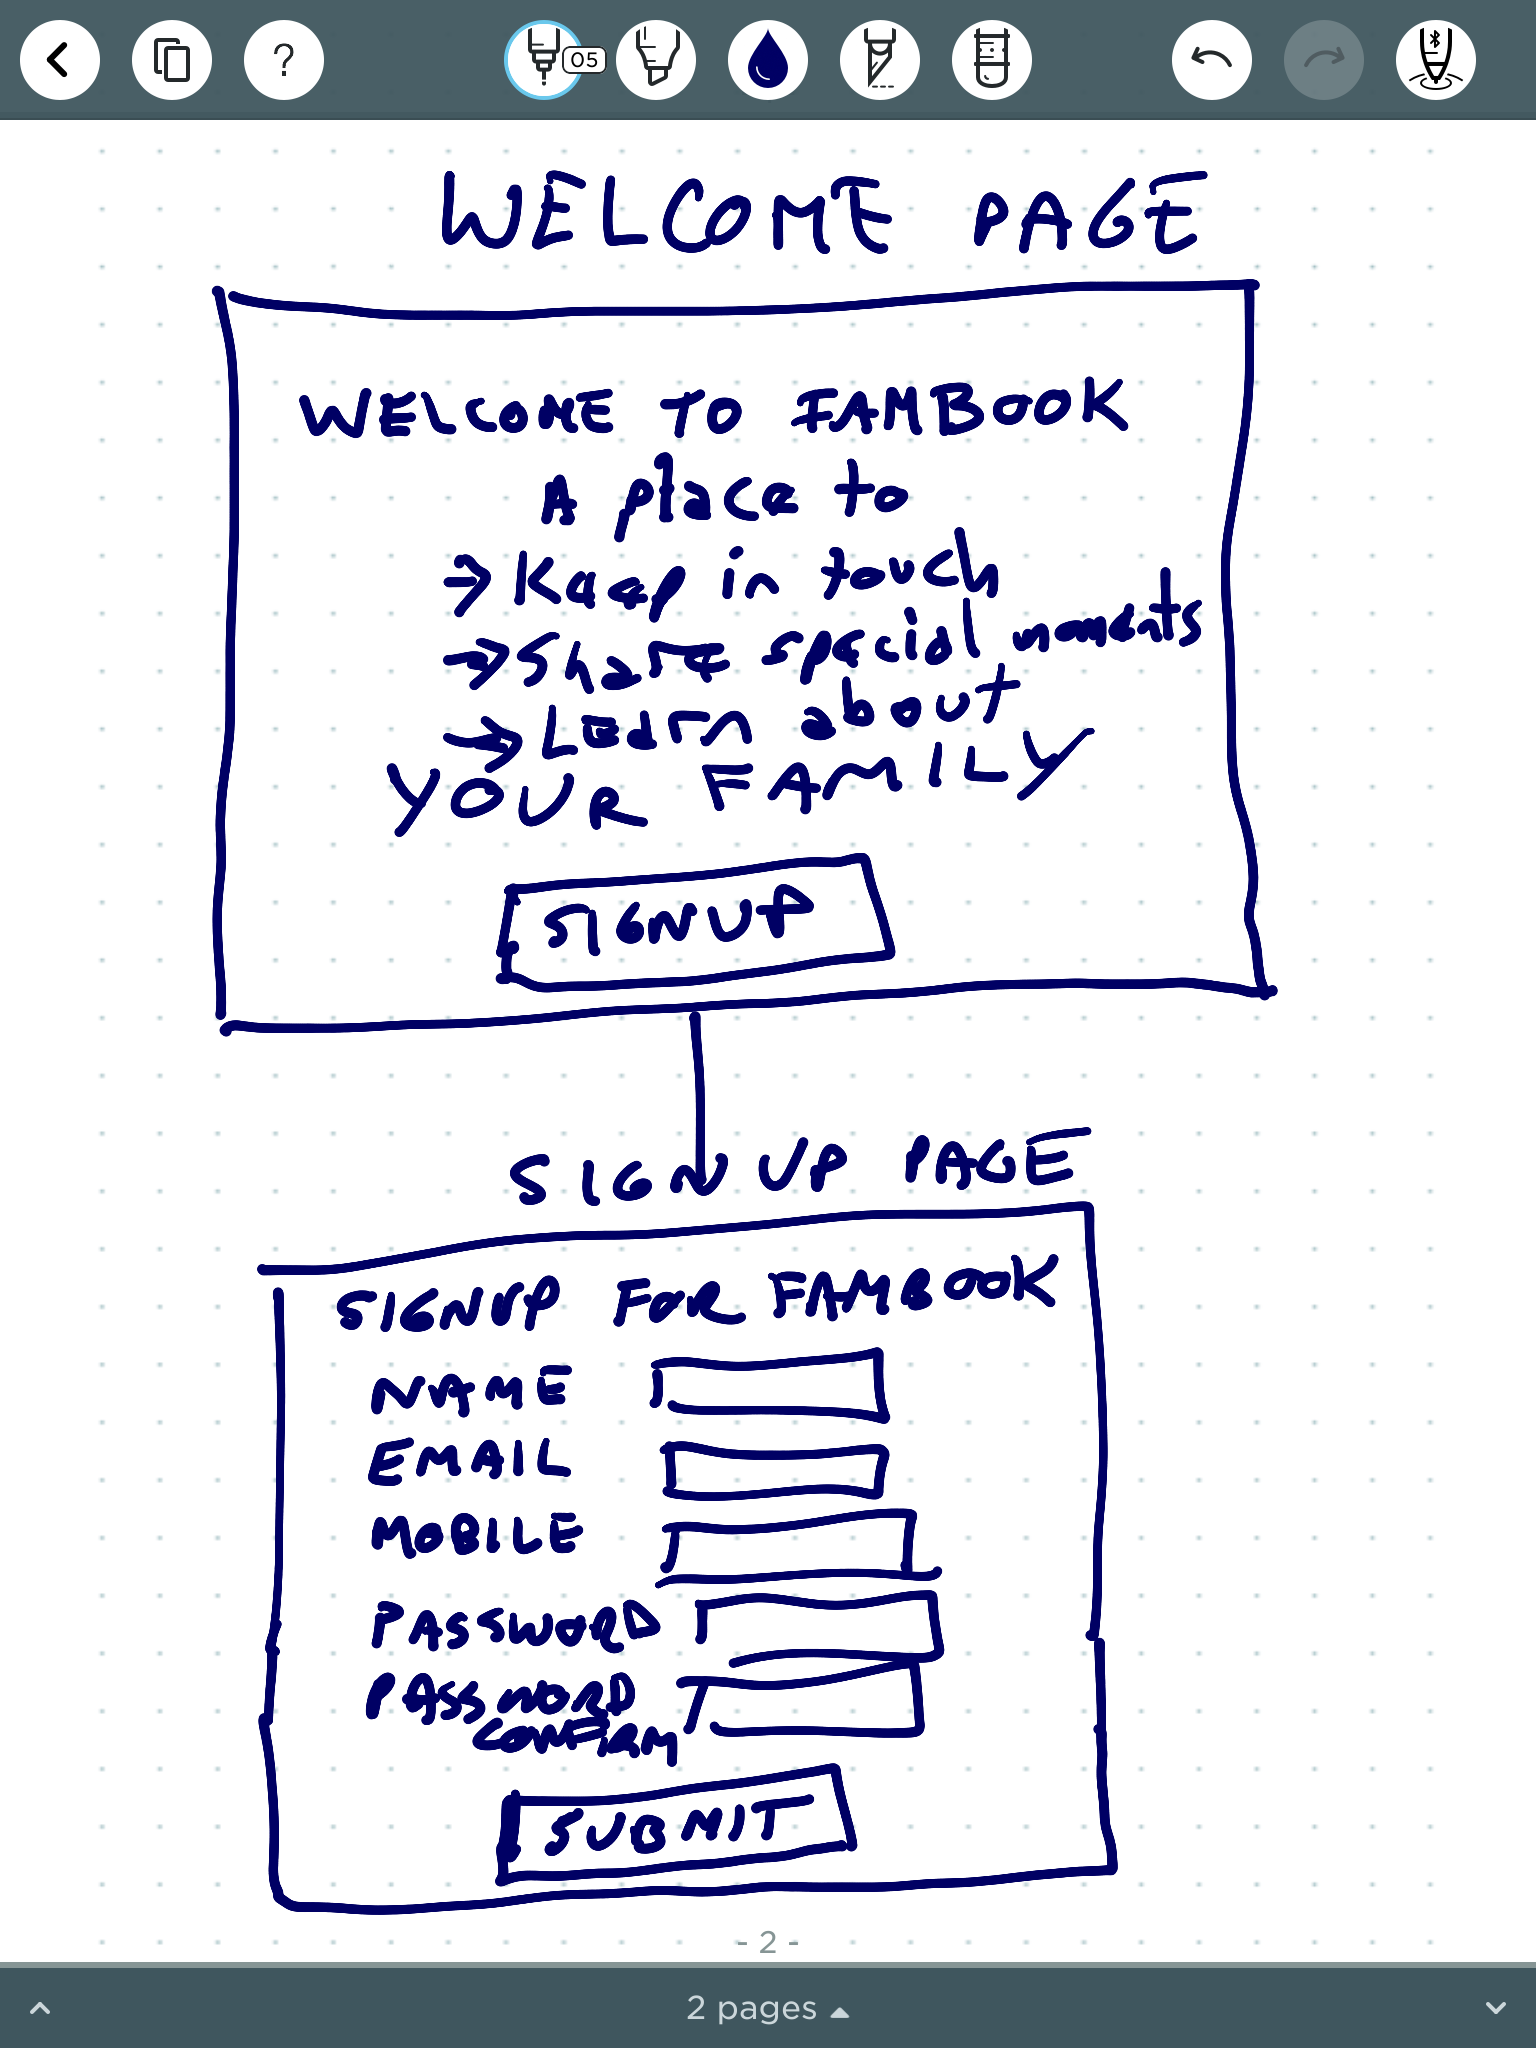 ?
05
WELCOME PAGE
WELCOME TO FAMBOOK
A place to
→ Keep in touch
→ Share special moments
→ Learn about
YOUR FAMILY
SIGNUP
SIGN UP PAGE
SIGNUP FOR FAMBOOK
NAME
EMAIL
MOBILE
PASSWORD
PASSWORD
CONFIRM
SUBMIT
- 2 -
2 pages